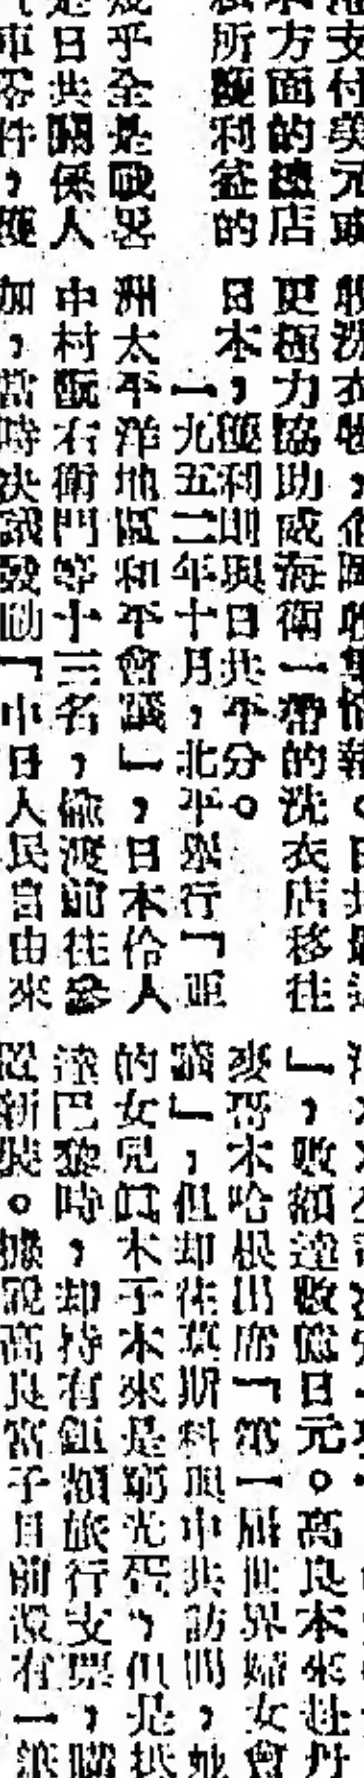 支付美元或
方面的店
所獲利益的
乎全是戰畧
是日共關係人
車零件，獲
收洗衣物，企圖收集情報。日共最近
更極力協助威海衛一帶的洗衣店移往
日本，獲利則與日共平分。
一九五二年十月，北平舉行「亞
洲太平洋地區和平會議」，日本伶人
中村翫右衛門等十三名，偸渡前往參
加，當時決議發動「中日人民自由來
」，數額達數億日元。高良本來赴丹
麥哥本哈根出席「第一屆世界婦女會
議」，但却往莫斯科與中共訪問，她
的女兒眞木子本來是窮光蛋，但是抵
達巴黎時，却持有鉅額旅行支票，購
置新裝。據說高良富子目前沒有一筆